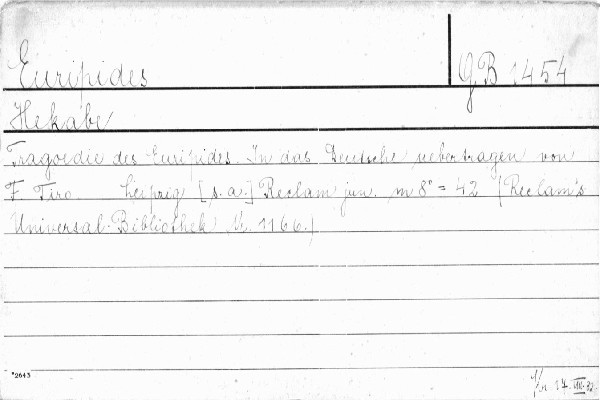 Euripides
GB 1454
Hekabe
Tragoedie des Euripides. In das Deutsche uebertragen von
F. Tiro Leipzig [s. a.] Reclam jun. m 8° = 42 (Reclam's
Universal-Bibliothek Nr. 1166.)
*2643
17. VIII. 32.